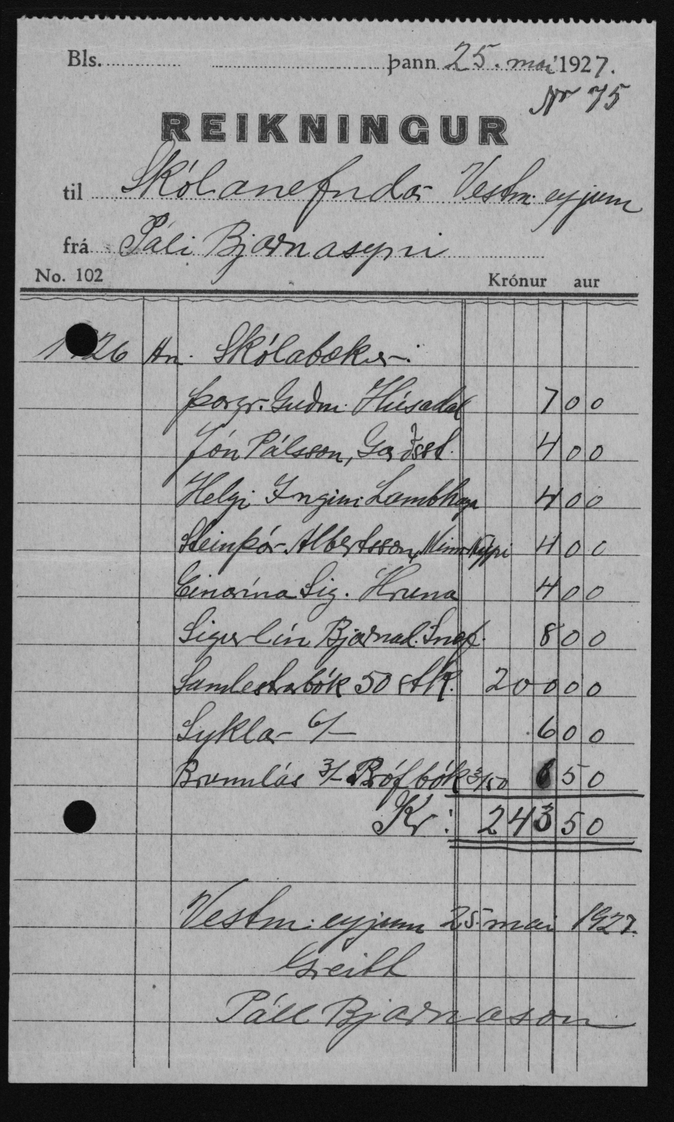 Bls. þann 25. mai 1927.
Nr 75
REIKNINGUR
til Skólanefndar Vestm.eyjum
frá Páli Bjarnasyni
No. 102 Krónur aur
26 Skólabækur
Þorgr. Guðm. Húsadal 7 00
Jón Pálsson, Garðsst. 4 00
Helgi Ingim. Lambhaga 4 00
Steinþór Albertsson, 4 00
Einarína Sig. Hruna 4 00
Sigurlín Bjarnad. 8 00
Samlestrarbók 50 stk. 200 00
Lyklar 6/- 6 00
3/- Prófbók 3/50 6 50
Kr: 243 50
Vestm.eyjum 25. mai 1927.
Greitt
Páll Bjarnason